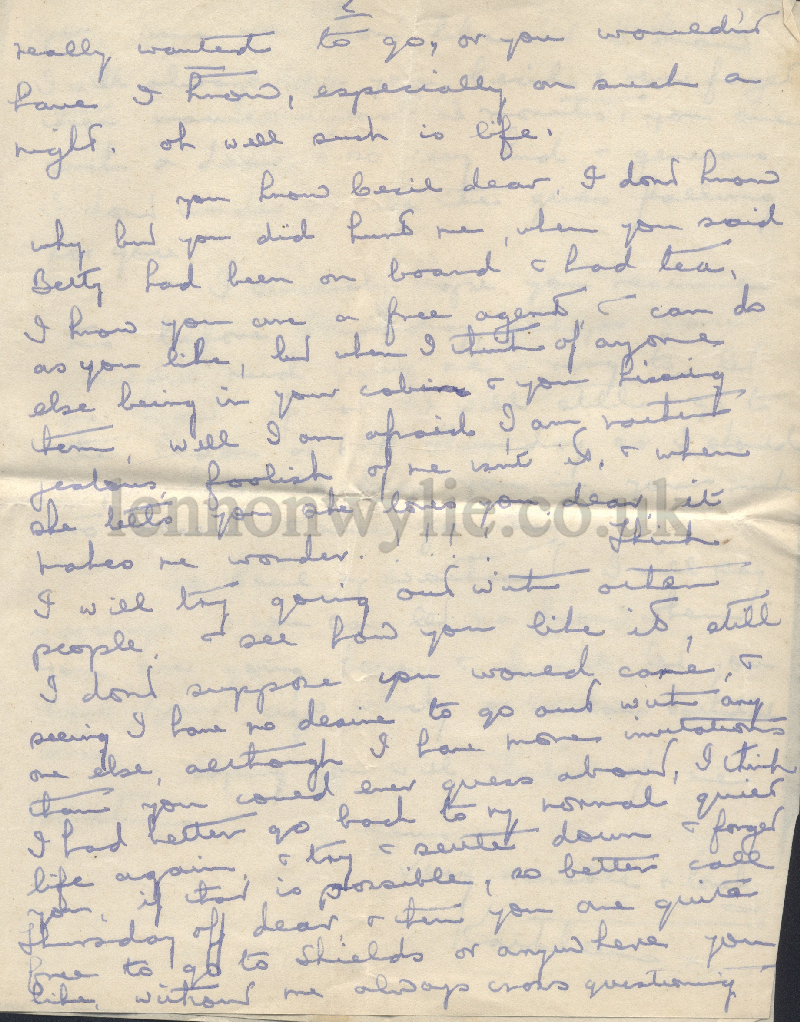 2
really wanted to go, or you wouldn't
have I know, especially on such a
night. oh well such is life.
you know Cecil dear, I dont know
why but you did hurt me, when you said
Betty had been on board & had tea,
I know you are a free agent, & can do
as you like, but when I think of anyone
else being in your cabin & you kissing
them, well I am afraid I am rotten
jealous, foolish of me isnt it, & when
she tells you she loves you dear, it
makes me wonder. !!!! Think
I will try going out with other
people, & see how you like it, still
I dont suppose you would care, &
seeing I have no desire to go out with any
one else, although I have more invitations
than you could ever guess about, I think
I had better go back to my normal quiet
life again, & try & settle down & forget
you, if that is possible, so better call
Thursday off dear, & then you are quite
free to go to Shields or anywhere you
like, without me always cross questioning
lennonwylie.co.uk